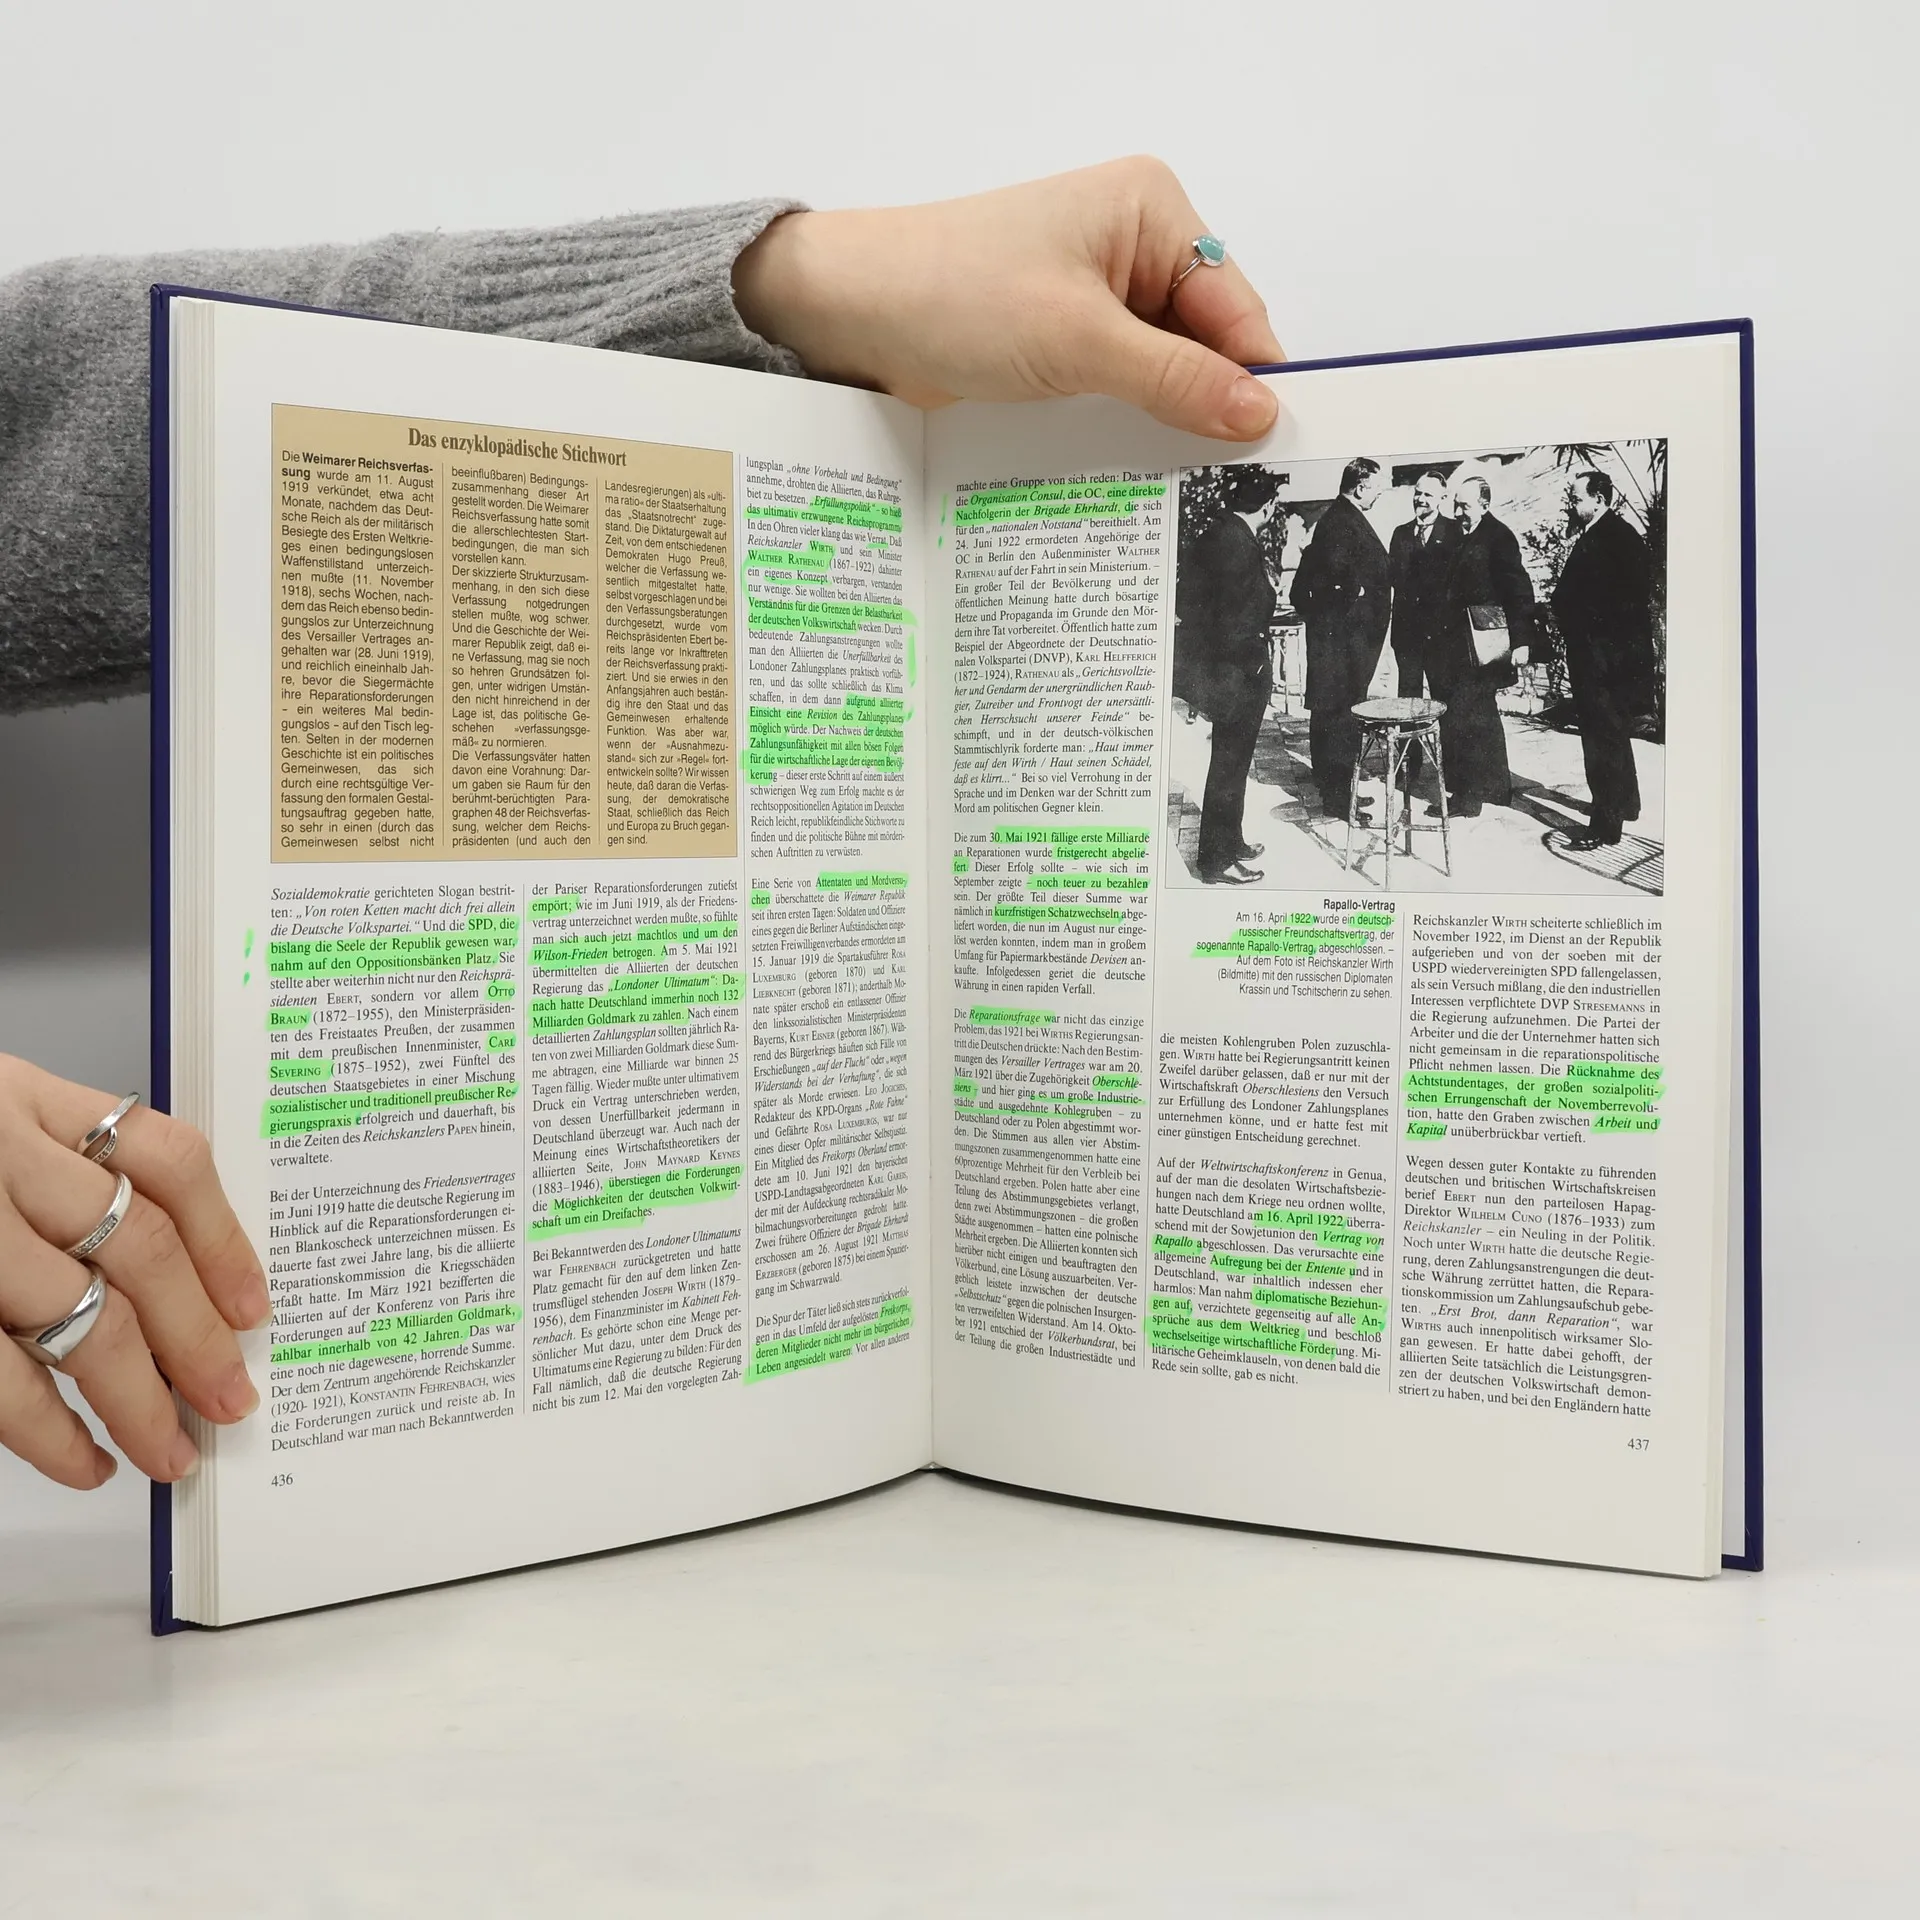 Das enzyklopädische Stichwort
Die Weimarer Reichsverfas-
sung wurde am 11. August
1919 verkündet, etwa acht
Monate, nachdem das Deut-
sche Reich als der militärisch
Besiegte des Ersten Weltkrie-
ges einen bedingungslosen
Waffenstillstand unterzeich-
nen mußte (11. November
1918), sechs Wochen, nach-
dem das Reich ebenso bedin-
gungslos zur Unterzeichnung
des Versailler Vertrages an-
gehalten war (28. Juni 1919),
und reichlich eineinhalb Jah-
re, bevor die Siegermächte
ihre Reparationsforderungen
– ein weiteres Mal bedin-
gungslos – auf den Tisch leg-
ten. Selten in der modernen
Geschichte ist ein politisches
Gemeinwesen, das sich
durch eine rechtsgültige Ver-
fassung den formalen Gestal-
tungsauftrag gegeben hatte,
so sehr in einen (durch das
Gemeinwesen selbst nicht
beeinflußbaren) Bedingungs-
zusammenhang dieser Art
gestellt worden. Die Weimarer
Reichsverfassung hatte somit
die allerschlechtesten Start-
bedingungen, die man sich
vorstellen kann.
Der skizzierte Strukturzusam-
menhang, in den sich diese
Verfassung notgedrungen
stellen mußte, wog schwer.
Und die Geschichte der Wei-
marer Republik zeigt, daß ei-
ne Verfassung, mag sie noch
so hehren Grundsätzen fol-
gen, unter widrigen Umstän-
den nicht hinreichend in der
Lage ist, das politische Ge-
schehen »verfassungsge-
mäß« zu normieren.
Die Verfassungsväter hatten
davon eine Vorahnung: Dar-
um gaben sie Raum für den
berühmt-berüchtigten Para-
graphen 48 der Reichsverfas-
sung, welcher dem Reichs-
präsidenten (und auch den
Landesregierungen) als »ulti-
ma ratio« der Staatserhaltung
das „Staatsnotrecht" zuge-
stand. Die Diktaturgewalt auf
Zeit, von dem entschiedenen
Demokraten Hugo Preuß,
welcher die Verfassung we-
sentlich mitgestaltet hatte,
selbst vorgeschlagen und bei
den Verfassungsberatungen
durchgesetzt, wurde vom
Reichspräsidenten Ebert be-
reits lange vor Inkrafttreten
der Reichsverfassung prakti-
ziert. Und sie erwies in den
Anfangsjahren auch bestän-
dig ihre den Staat und das
Gemeinwesen erhaltende
Funktion. Was aber war,
wenn der »Ausnahmezu-
stand« sich zur »Regel« fort-
entwickeln sollte? Wir wissen
heute, daß daran die Verfas-
sung, der demokratische
Staat, schließlich das Reich
und Europa zu Bruch gegan-
gen sind.
Sozialdemokratie gerichteten Slogan bestrit-
ten: „Von roten Ketten macht dich frei allein
die Deutsche Volkspartei." Und die SPD, die
bislang die Seele der Republik gewesen war,
nahm auf den Oppositionsbänken Platz. Sie
stellte aber weiterhin nicht nur den Reichsprä-
sidenten EBERT, sondern vor allem OTTO
BRAUN (1872–1955), den Ministerpräsiden-
ten des Freistaates Preußen, der zusammen
mit dem preußischen Innenminister, CARL
SEVERING (1875–1952), zwei Fünftel des
deutschen Staatsgebietes in einer Mischung
sozialistischer und traditionell preußischer Re-
gierungspraxis erfolgreich und dauerhaft, bis
in die Zeiten des Reichskanzlers PAPEN hinein,
verwaltete.
Bei der Unterzeichnung des Friedensvertrages
im Juni 1919 hatte die deutsche Regierung im
Hinblick auf die Reparationsforderungen ei-
nen Blankoscheck unterzeichnen müssen. Es
dauerte fast zwei Jahre lang, bis die alliierte
Reparationskommission die Kriegsschäden
erfaßt hatte. Im März 1921 bezifferten die
Alliierten auf der Konferenz von Paris ihre
Forderungen auf 223 Milliarden Goldmark,
zahlbar innerhalb von 42 Jahren. Das war
eine noch nie dagewesene, horrende Summe.
Der dem Zentrum angehörende Reichskanzler
(1920- 1921), KONSTANTIN FEHRENBACH, wies
die Forderungen zurück und reiste ab. In
Deutschland war man nach Bekanntwerden
der Pariser Reparationsforderungen zutiefst
empört; wie im Juni 1919, als der Friedens-
vertrag unterzeichnet werden mußte, so fühlte
man sich auch jetzt machtlos und um den
Wilson-Frieden betrogen. Am 5. Mai 1921
übermittelten die Alliierten der deutschen
Regierung das „Londoner Ultimatum": Da-
nach hatte Deutschland immerhin noch 132
Milliarden Goldmark zu zahlen. Nach einem
detaillierten Zahlungsplan sollten jährlich Ra-
ten von zwei Milliarden Goldmark diese Sum-
me abtragen, eine Milliarde war binnen 25
Tagen fällig. Wieder mußte unter ultimativem
Druck ein Vertrag unterschrieben werden,
von dessen Unerfüllbarkeit jedermann in
Deutschland überzeugt war. Auch nach der
Meinung eines Wirtschaftstheoretikers der
alliierten Seite, JOHN MAYNARD KEYNES
(1883–1946), überstiegen die Forderungen
die Möglichkeiten der deutschen Volkwirt-
schaft um ein Dreifaches.
Bei Bekanntwerden des Londoner Ultimatums
war FEHRENBACH zurückgetreten und hatte
Platz gemacht für den auf dem linken Zen-
trumsflügel stehenden JOSEPH WIRTH (1879–
1956), dem Finanzminister im Kabinett Feh-
renbach. Es gehörte schon eine Menge per-
sönlicher Mut dazu, unter dem Druck des
Ultimatums eine Regierung zu bilden: Für den
Fall nämlich, daß die deutsche Regierung
nicht bis zum 12. Mai den vorgelegten Zah-
lungsplan „ohne Vorbehalt und Bedingung"
annehme, drohten die Alliierten, das Ruhrge-
biet zu besetzen. „Erfüllungspolitik" - so hieß
das ultimativ erzwungene Reichsprogramm.
In den Ohren vieler klang das wie Verrat. Daß
Reichskanzler WIRTH und sein Minister
WALTHER RATHENAU (1867–1922) dahinter
ein eigenes Konzept verbargen, verstanden
nur wenige. Sie wollten bei den Alliierten das
Verständnis für die Grenzen der Belastbarkeit
der deutschen Volkswirtschaft wecken. Durch
bedeutende Zahlungsanstrengungen wollte
man den Alliierten die Unerfüllbarkeit des
Londoner Zahlungsplanes praktisch vorfüh-
ren, und das sollte schließlich das Klima
schaffen, in dem dann aufgrund alliierter
Einsicht eine Revision des Zahlungsplanes
möglich würde. Der Nachweis der deutschen
Zahlungsunfähigkeit mit allen bösen Folgen
für die wirtschaftliche Lage der eigenen Bevöl-
kerung – dieser erste Schritt auf einem äußerst
schwierigen Weg zum Erfolg machte es der
rechtsoppositionellen Agitation im Deutschen
Reich leicht, republikfeindliche Stichworte zu
finden und die politische Bühne mit mörderi-
schen Auftritten zu verwüsten.
Eine Serie von Attentaten und Mordversu-
chen überschattete die Weimarer Republik
seit ihren ersten Tagen: Soldaten und Offiziere
eines gegen die Berliner Aufständischen einge-
setzten Freiwilligenverbandes ermordeten am
15. Januar 1919 die Spartakusführer ROSA
LUXEMBURG (geboren 1870) und KARL
LIEBKNECHT (geboren 1871); anderthalb Mo-
nate später erschoß ein entlassener Offizier
den linkssozialistischen Ministerpräsidenten
Bayerns, KURT EISNER (geboren 1867). Wäh-
rend des Bürgerkriegs häuften sich Fälle von
Erschießungen „auf der Flucht" oder „wegen
Widerstands bei der Verhaftung", die sich
später als Morde erwiesen. LEO JOGICHES,
Redakteur des KPD-Organs „Rote Fahne"
und Gefährte ROSA LUXEMBURGS, war nur
eines dieser Opfer militärischer Selbstjustiz.
Ein Mitglied des Freikorps Oberland ermor-
dete am 10. Juni 1921 den bayerischen
USPD-Landtagsabgeordneten KARL GAREIS,
der mit der Aufdeckung rechtsradikaler Mo-
bilmachungsvorbereitungen gedroht hatte.
Zwei frühere Offiziere der Brigade Ehrhardt
erschossen am 26. August 1921 MATTHIAS
ERZBERGER (geboren 1875) bei einem Spazier-
gang im Schwarzwald.
Die Spur der Täter ließ sich stets zurückverfol-
gen in das Umfeld der aufgelösten Freikorps,
deren Mitglieder nicht mehr im bürgerlichen
Leben angesiedelt waren. Vor allen anderen
436
machte eine Gruppe von sich reden: Das war
die Organisation Consul, die OC, eine direkte
Nachfolgerin der Brigade Ehrhardt, die sich
für den „nationalen Notstand" bereithielt. Am
24. Juni 1922 ermordeten Angehörige der
OC in Berlin den Außenminister WALTHER
RATHENAU auf der Fahrt in sein Ministerium. –
Ein großer Teil der Bevölkerung und der
öffentlichen Meinung hatte durch bösartige
Hetze und Propaganda im Grunde den Mör-
dern ihre Tat vorbereitet. Öffentlich hatte zum
Beispiel der Abgeordnete der Deutschnatio-
nalen Volkspartei (DNVP), KARL HELFFERICH
(1872–1924), RATHENAU als „Gerichtsvollzie-
her und Gendarm der unergründlichen Raub-
gier, Zutreiber und Frontvogt der unersättli-
chen Herrschsucht unserer Feinde" be-
schimpft, und in der deutsch-völkischen
Stammtischlyrik forderte man: „Haut immer
feste auf den Wirth / Haut seinen Schädel,
daß es klirrt..." Bei so viel Verrohung in der
Sprache und im Denken war der Schritt zum
Mord am politischen Gegner klein.
Die zum 30. Mai 1921 fällige erste Milliarde
an Reparationen wurde fristgerecht abgelie-
fert. Dieser Erfolg sollte – wie sich im
September zeigte – noch teuer zu bezahlen
sein. Der größte Teil dieser Summe war
nämlich in kurzfristigen Schatzwechseln abge-
liefert worden, die nun im August nur einge-
löst werden konnten, indem man in großem
Umfang für Papiermarkbestände Devisen an-
kaufte. Infolgedessen geriet die deutsche
Währung in einen rapiden Verfall.
Die Reparationsfrage war nicht das einzige
Problem, das 1921 bei WIRTHS Regierungsan-
tritt die Deutschen drückte: Nach den Bestim-
mungen des Versailler Vertrages war am 20.
März 1921 über die Zugehörigkeit Oberschle-
siens - und hier ging es um große Industrie-
städte und ausgedehnte Kohlegruben – zu
Deutschland oder zu Polen abgestimmt wor-
den. Die Stimmen aus allen vier Abstim-
mungszonen zusammengenommen hatte eine
60prozentige Mehrheit für den Verbleib bei
Deutschland ergeben. Polen hatte aber eine
Teilung des Abstimmungsgebietes verlangt,
denn zwei Abstimmungszonen – die großen
Städte ausgenommen – hatten eine polnische
Mehrheit ergeben. Die Alliierten konnten sich
hierüber nicht einigen und beauftragten den
Völkerbund, eine Lösung auszuarbeiten. Ver-
geblich leistete inzwischen der deutsche
„Selbstschutz" gegen die polnischen Insurgen-
ten verzweifelten Widerstand. Am 14. Okto-
ber 1921 entschied der Völkerbundsrat, bei
der Teilung die großen Industriestädte und
Rapallo-Vertrag
Am 16. April 1922 wurde ein deutsch-
russischer Freundschaftsvertrag, der
sogenannte Rapallo-Vertrag, abgeschlossen. –
Auf dem Foto ist Reichskanzler Wirth
(Bildmitte) mit den russischen Diplomaten
Krassin und Tschitscherin zu sehen.
die meisten Kohlengruben Polen zuzuschla-
gen. WIRTH hatte bei Regierungsantritt keinen
Zweifel darüber gelassen, daß er nur mit der
Wirtschaftskraft Oberschlesiens den Versuch
zur Erfüllung des Londoner Zahlungsplanes
unternehmen könne, und er hatte fest mit
einer günstigen Entscheidung gerechnet.
Auf der Weltwirtschaftskonferenz in Genua,
auf der man die desolaten Wirtschaftsbezie-
hungen nach dem Kriege neu ordnen wollte,
hatte Deutschland am 16. April 1922 überra-
schend mit der Sowjetunion den Vertrag von
Rapallo abgeschlossen. Das verursachte eine
allgemeine Aufregung bei der Entente und in
Deutschland, war inhaltlich indessen eher
harmlos: Man nahm diplomatische Beziehun-
gen auf, verzichtete gegenseitig auf alle An-
sprüche aus dem Weltkrieg und beschloß
wechselseitige wirtschaftliche Förderung. Mi-
litärische Geheimklauseln, von denen bald die
Rede sein sollte, gab es nicht.
Reichskanzler WIRTH scheiterte schließlich im
November 1922, im Dienst an der Republik
aufgerieben und von der soeben mit der
USPD wiedervereinigten SPD fallengelassen,
als sein Versuch mißlang, die den industriellen
Interessen verpflichtete DVP STRESEMANNS in
die Regierung aufzunehmen. Die Partei der
Arbeiter und die der Unternehmer hatten sich
nicht gemeinsam in die reparationspolitische
Pflicht nehmen lassen. Die Rücknahme des
Achtstundentages, der großen sozialpoliti-
schen Errungenschaft der Novemberrevolu-
tion, hatte den Graben zwischen Arbeit und
Kapital unüberbrückbar vertieft.
Wegen dessen guter Kontakte zu führenden
deutschen und britischen Wirtschaftskreisen
berief EBERT nun den parteilosen Hapag-
Direktor WILHELM CUNO (1876–1933) zum
Reichskanzler – ein Neuling in der Politik.
Noch unter WIRTH hatte die deutsche Regie-
rung, deren Zahlungsanstrengungen die deut-
sche Währung zerrüttet hatten, die Repara-
tionskommission um Zahlungsaufschub gebe-
ten. „Erst Brot, dann Reparation", war
WIRTHS auch innenpolitisch wirksamer Slo-
gan gewesen. Er hatte dabei gehofft, der
alliierten Seite tatsächlich die Leistungsgren-
zen der deutschen Volkswirtschaft demon-
striert zu haben, und bei den Engländern hatte
437